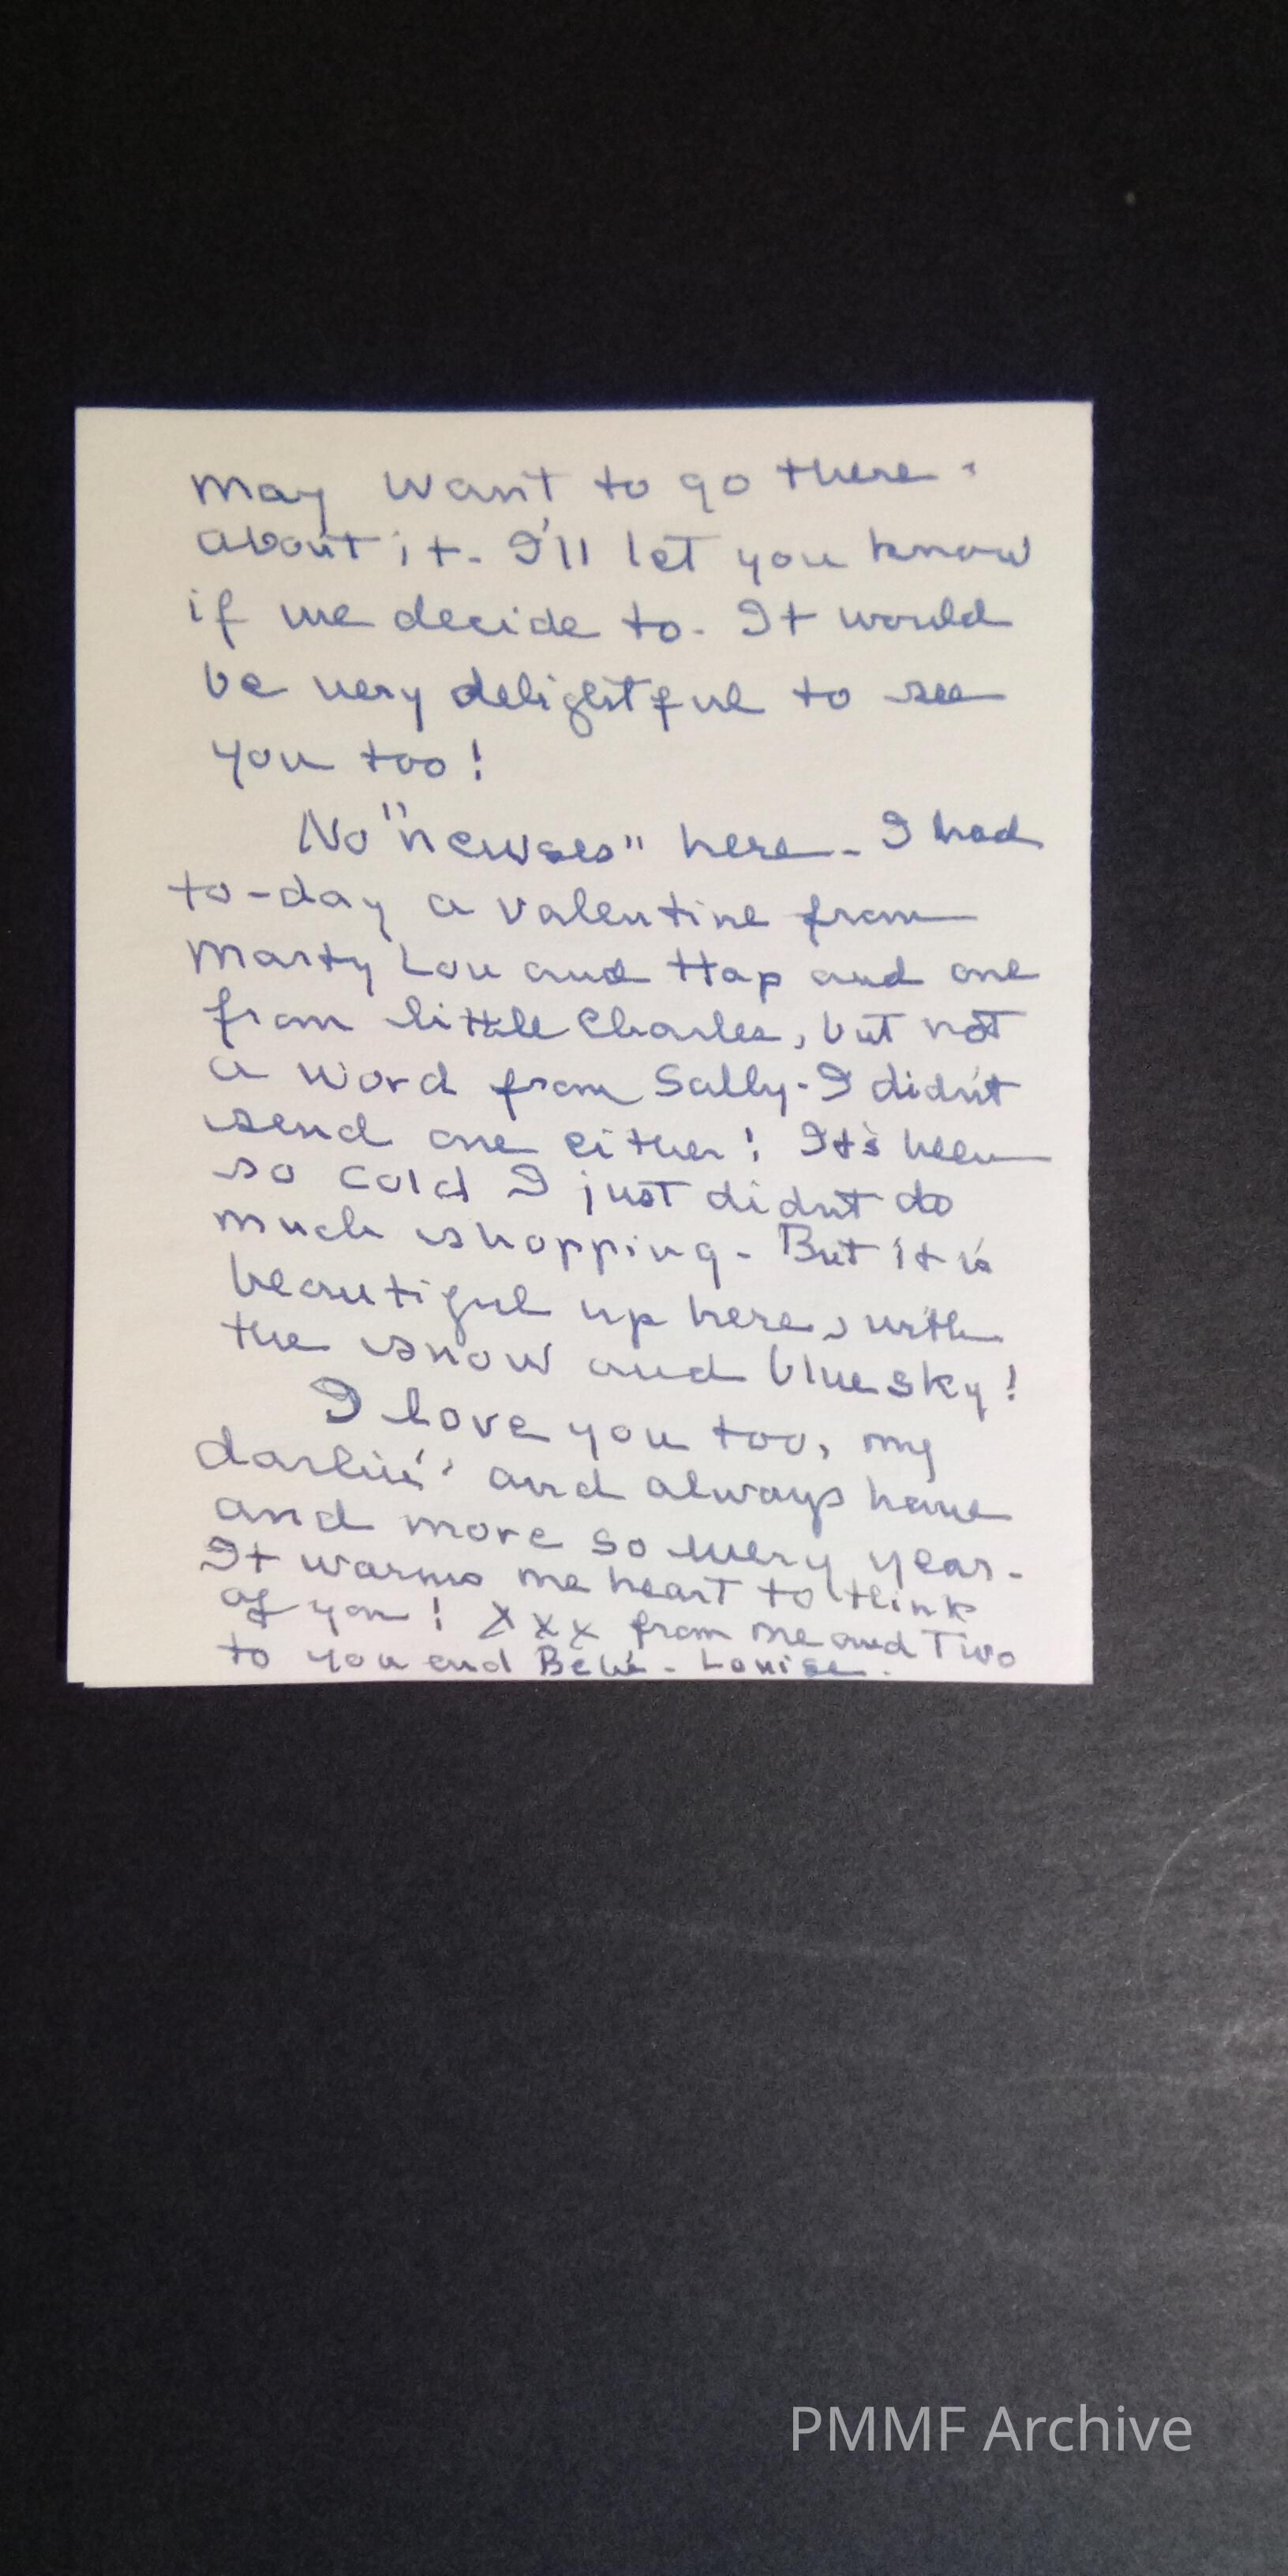 may want to go there.
about it. I'll let you know
if we decide to. It would
be very delightful to see
you too!
No "newses" here - I had
to-day a valentine from
Marty Lou and Hap and one
from little Charles, but not
a word from Sally - I didn't
send one either! It's been
so cold I just didn't do
much shopping - But it is
beautiful up here, with
the snow and blue sky!
I love you too, my
darlin' and always have
and more so every year.
It warms me heart to think
of you! XXX from me and Tivo
to you and Bébé - Louise.
PMMF Archive